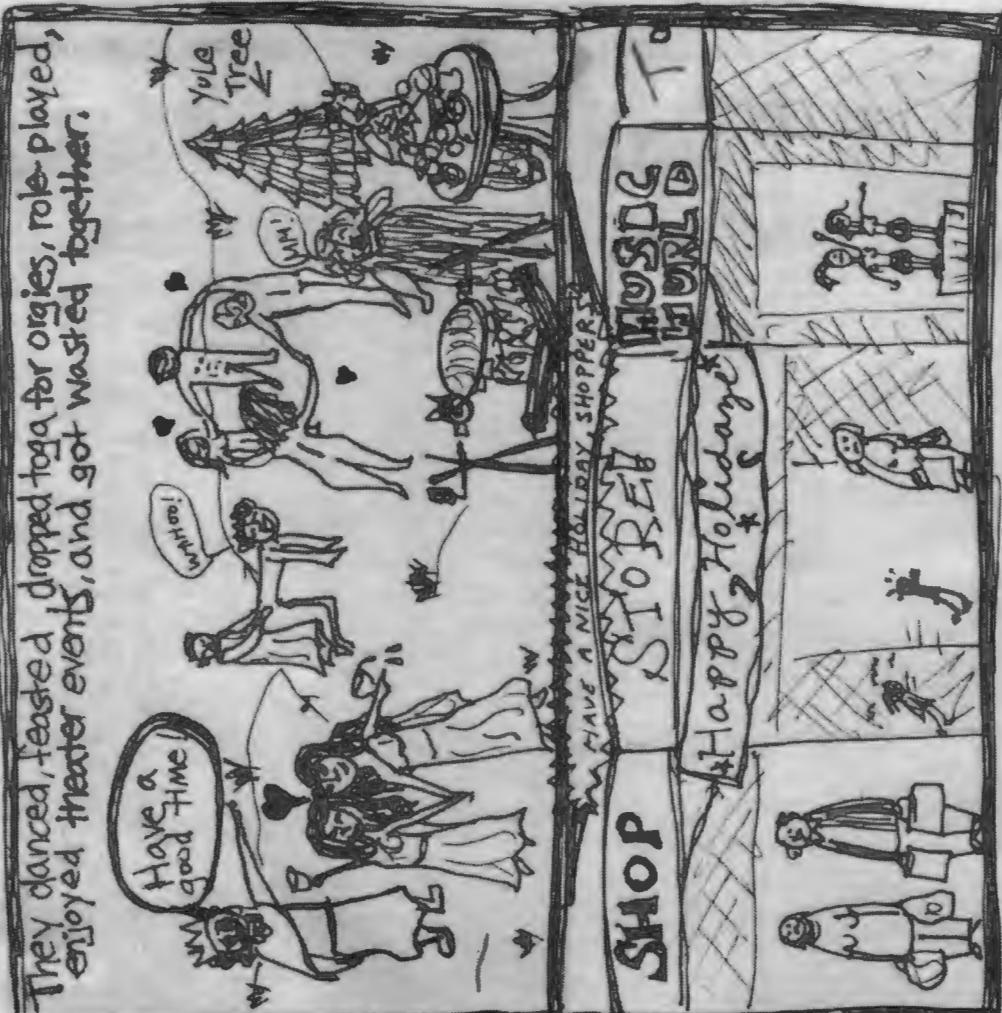 They danced, feasted, dropped toga for orgies, role-played,
enjoyed theater events, and got wasted together.
Have a
good TIME
WAHOO!
MM!
YULE
TREE
HAVE A NICE HOLIDAY SHOPPERS
SHOP
STORE!!
MUSIC
WURLD
T
Happy Holidaze